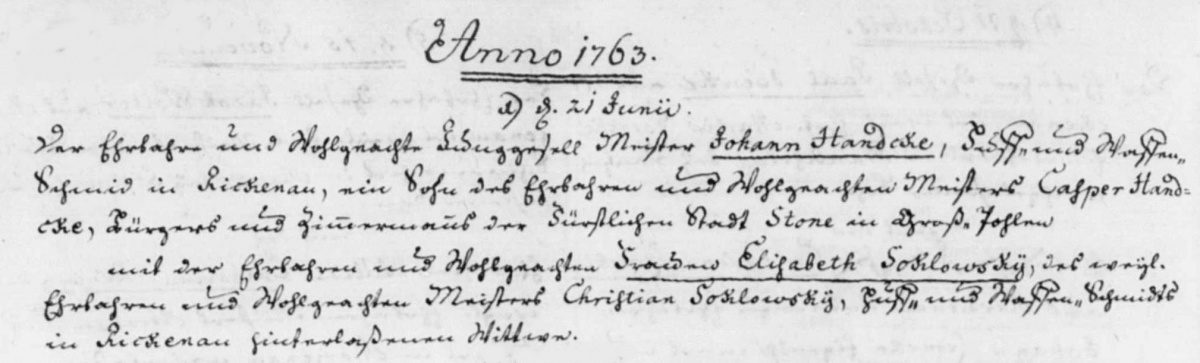 Anno 1763.
1) d. 21 Junii.
Der Ehrbahre und Wohlgeachte Junggesell Meister Johann Handcke, Huff- und Waffen-
Schmid in Rickenau, ein Sohn des Ehrbahren und Wohlgeachten Meisters Casper Hand-
cke, Bürgers und Zimermañs der Fürstlichen Stadt Stone in Groß-Pohlen
mit der Ehrbahren und Wohlgeachten Frauen Elisabeth Soklowskÿ, des weyl.
Ehrbahren und Wohlgeachten Meisters Christian Soklowskÿ, Huff- und Waffen-Schmidts
in Rickenau hinterlaßenen Wittwe.